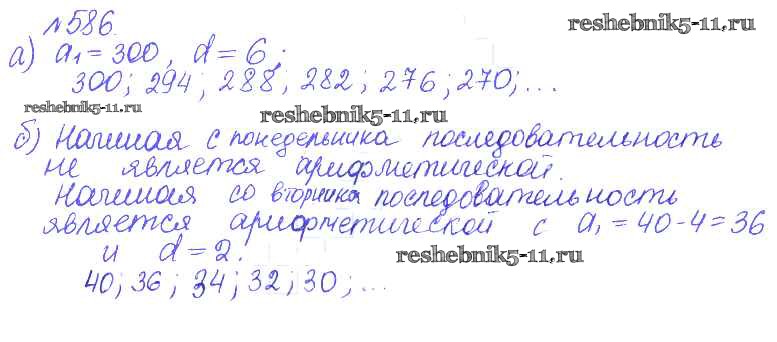 №586.
reshebnik5-11.ru
а) a₁ = 300, d = 6;
300; 294; 288; 282; 276; 270; ...
reshebnik5-11.ru
reshebnik5-11.ru
б) Начиная с понедельника последовательность
не является арифметической.
Начиная со вторника последовательность
является арифметической с a₁ = 40 - 4 = 36
и d = 2.
reshebnik5-11.ru
40; 36; 34; 32; 30; ...